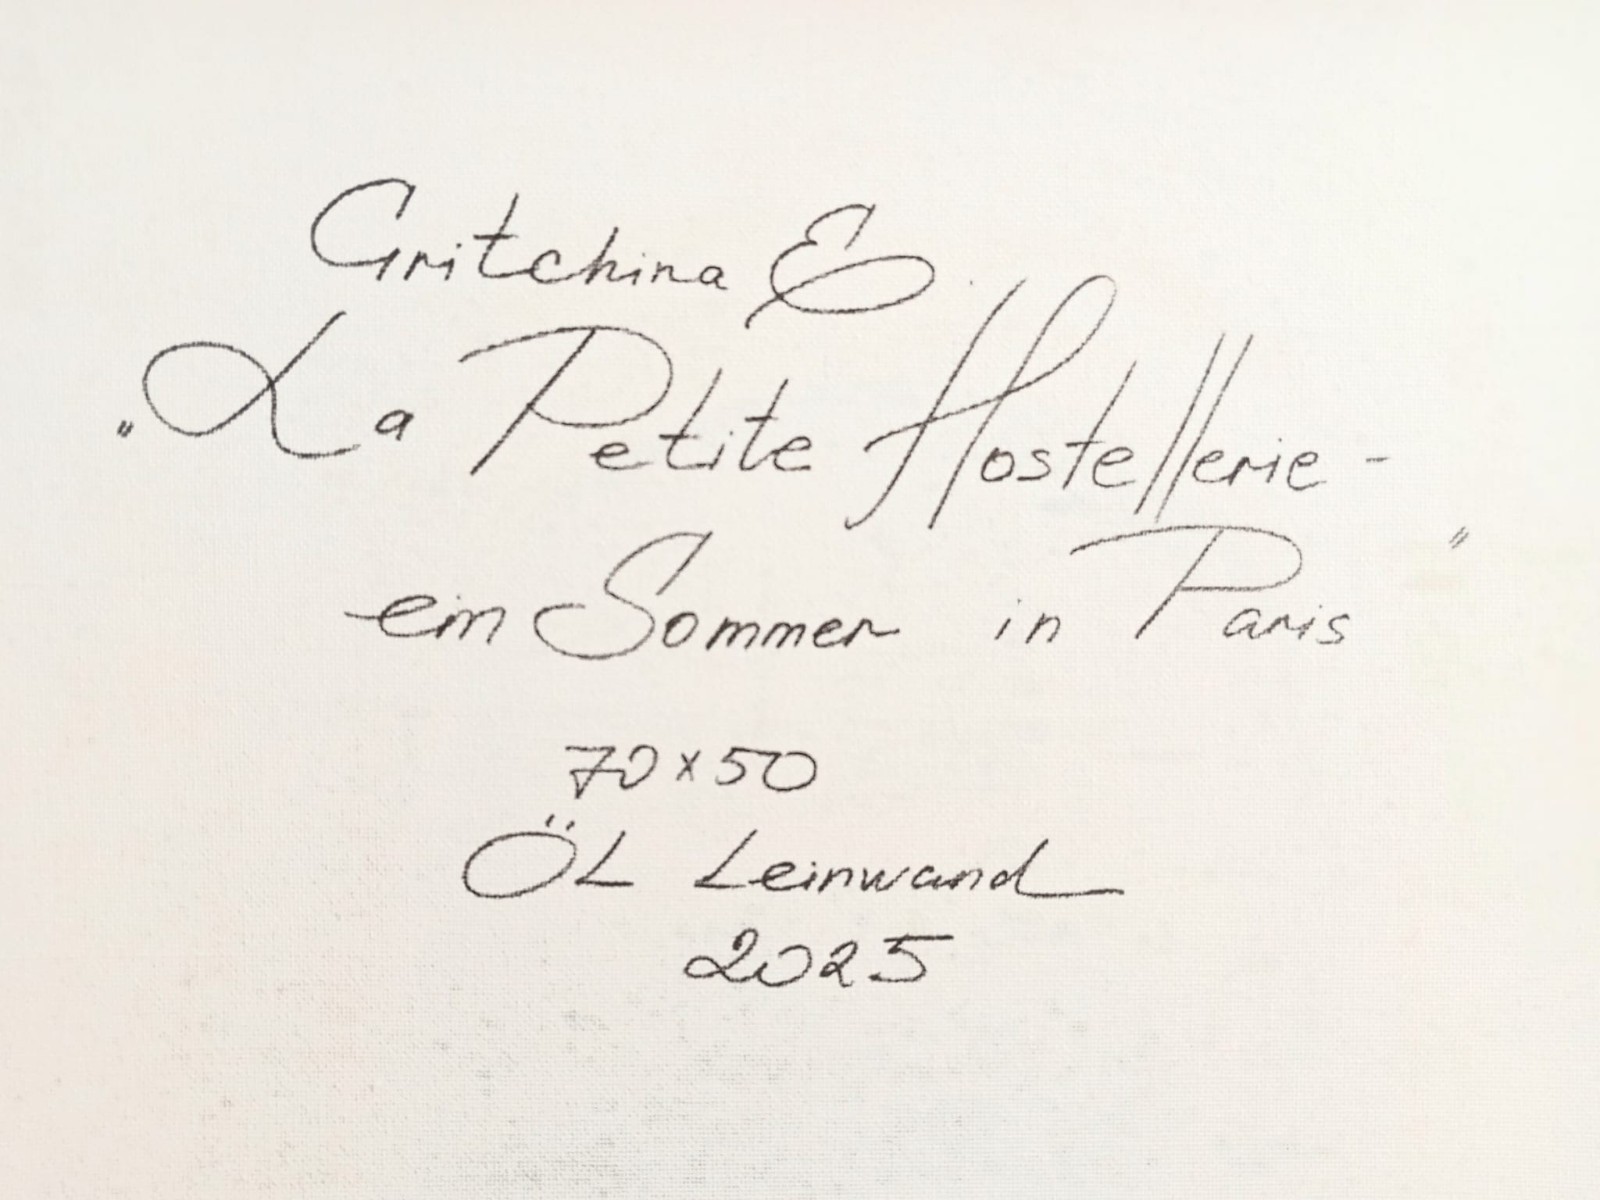 Gritchina E.
„La Petite Hostellerie -
ein Sommer in Paris"
70x50
ÖL Leinwand
2025